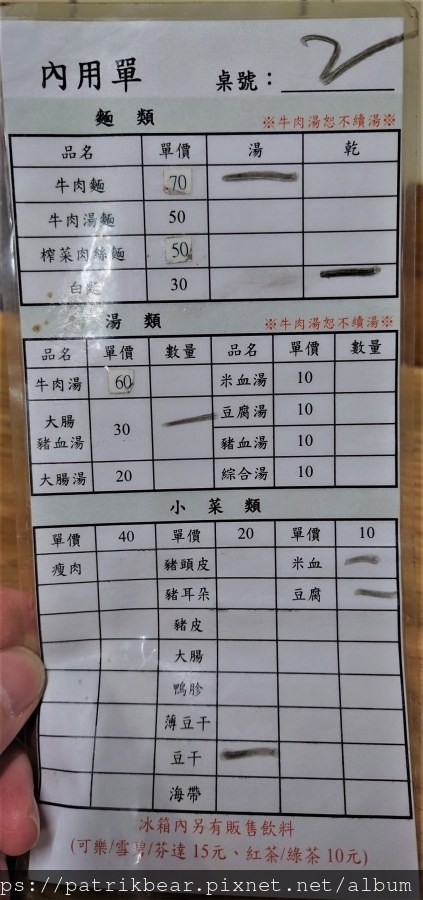 內用單 桌號：2
麵類 ※牛肉湯恕不續湯※
品名 單價 湯 乾
牛肉麵 70
牛肉湯麵 50
榨菜肉絲麵 50
白麵 30
湯類 ※牛肉湯恕不續湯※
品名 單價 數量 品名 單價 數量
牛肉湯 60 米血湯 10
大腸豬血湯 30 豆腐湯 10
豬血湯 10
大腸湯 20 綜合湯 10
小菜類
單價 40 單價 20 單價 10
瘦肉 豬頭皮 米血
豬耳朵 豆腐
豬皮
大腸
鴨胗
薄豆干
豆干
海帶
冰箱內另有販售飲料
(可樂/雪碧/芬達 15元、紅茶/綠茶 10元)
ps://patrikbear.pixnet.net/album